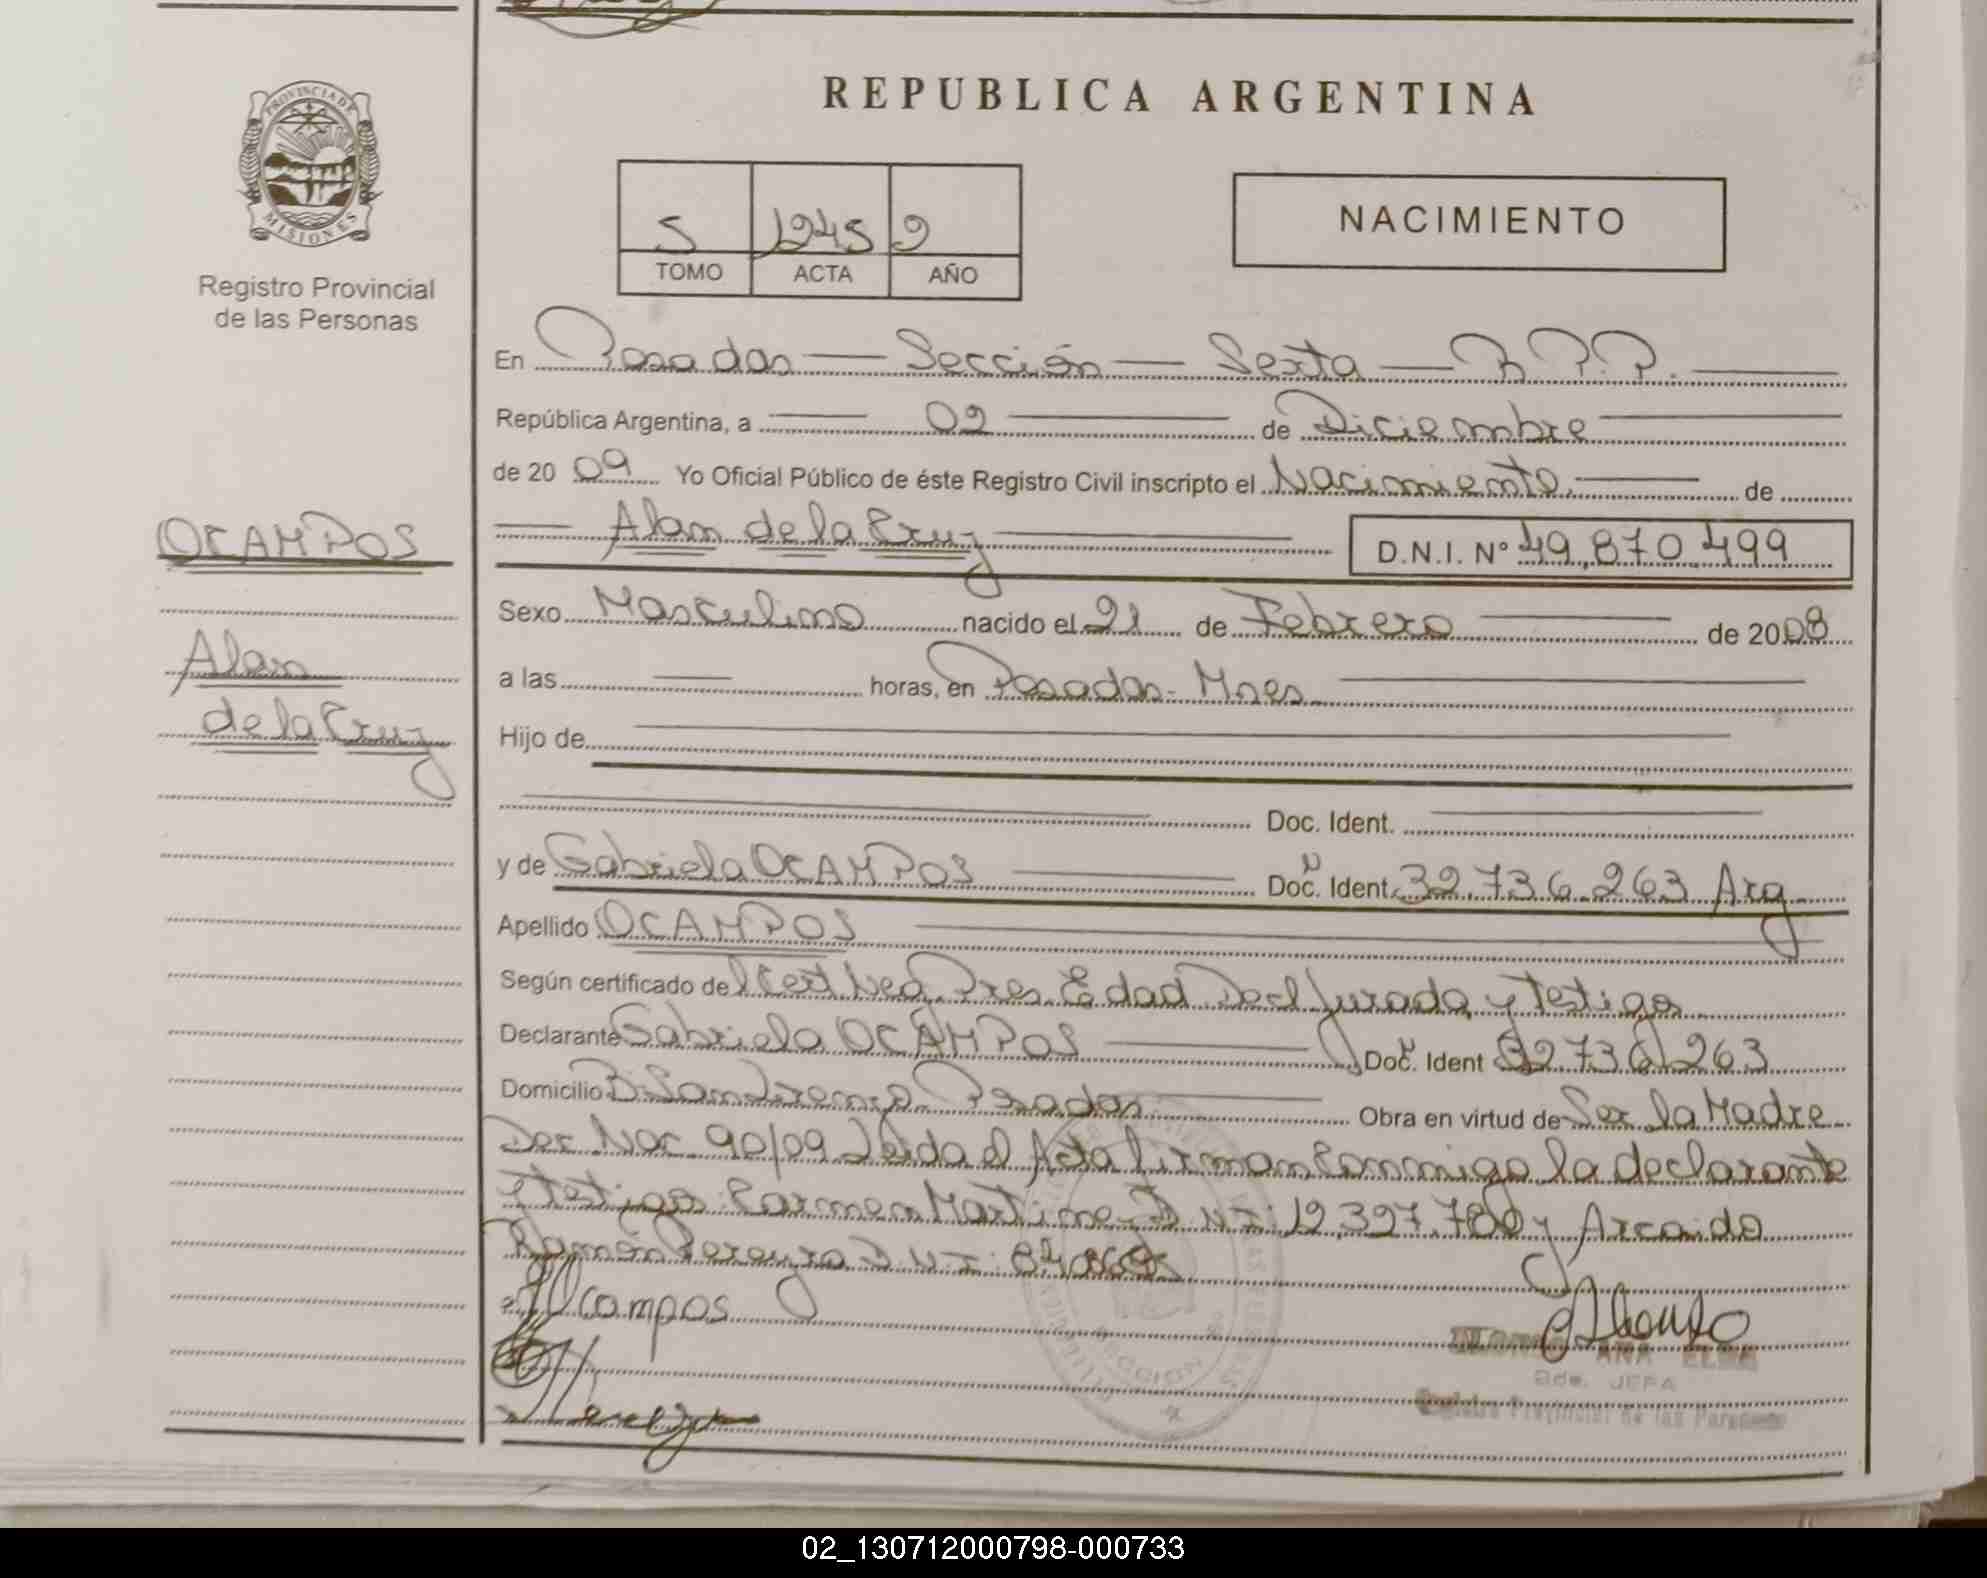 REPUBLICA ARGENTINA
PROVINCIA DE MISIONES
Registro Provincial
de las Personas
5 1245 9
TOMO ACTA AÑO
NACIMIENTO
En Posadas — Sección — Sexta — R.P.P.
República Argentina, a 02 de Diciembre
de 20 09 Yo Oficial Público de éste Registro Civil inscripto el Nacimiento de
Alan de la Cruz D.N.I. Nº 49.870.499
OCAMPOS
Alan
de la Cruz
Sexo Masculino nacido el 21 de Febrero de 2008
a las — horas, en Posadas - Mnes
Hijo de
Doc. Ident.
y de Gabriela OCAMPOS Doc. Ident. 32.736.263 Arg
Apellido OCAMPOS
Según certificado de Cert Neg. Pres. Edad Decl Jurada y Testigos
Declarante Gabriela OCAMPOS Doc. Ident 32.736.263
Domicilio Posadas Obra en virtud de Ser la Madre
Dec Nac 90/09 Leida el Acta firman conmigo la declarante
y testigos: Carmen Martinez D N I: 12.327.780 y Arcaido
Ramón Pereyra D N I:
Ocampos
ANA ELBA
Gde. JEFA
Registro Provincial de las Personas
SECCION
02_130712000798-000733